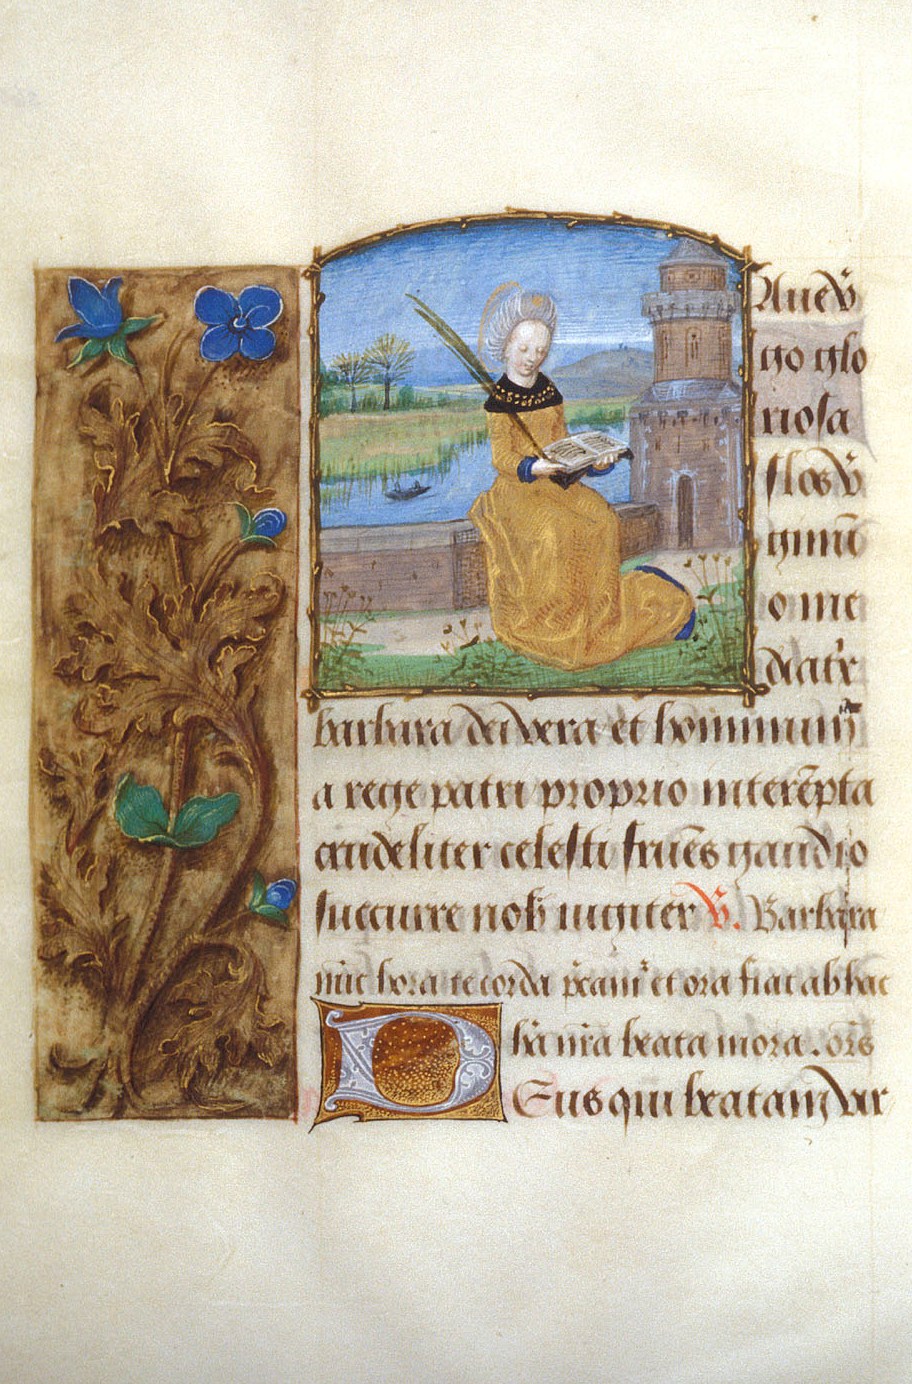 Aue v̄
go glo
riosa
flos v̄
ginū
o me
diatx̄
barbara dei vera et hominum
a rege patri proprio interēpta
crudeliter celesti fruēs gaudio
succurre nob iugiter V̄. Barbara
nūc hora te corda p̄cam̄ et ora fiat ab hac
D hā nr̄a beata mora. orō
Eus qui beatam var